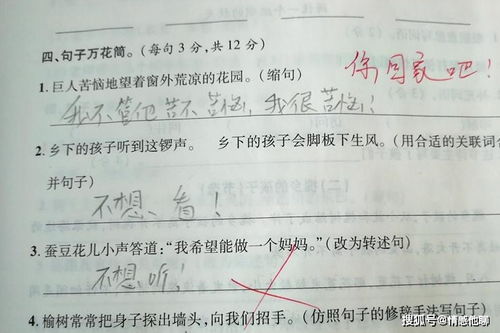 四、句子万花筒。(每句 3 分,共 12 分)
1.巨人苦恼地望着窗外荒凉的花园。(缩句)
你回家吧!
我不管他苦不苦恼,我很苦恼!
2.乡下的孩子听到这锣声。 乡下的孩子会脚板下生风。(用合适的关联词合
并句子)
不想、看!
3.蚕豆花儿小声答道:“我希望能做一个妈妈。”(改为转述句)
不想听!
4.榆树常常把身子探出墙头,向我们招手。(仿照句子的修辞手法写句子)
搜狐号@情感他聊